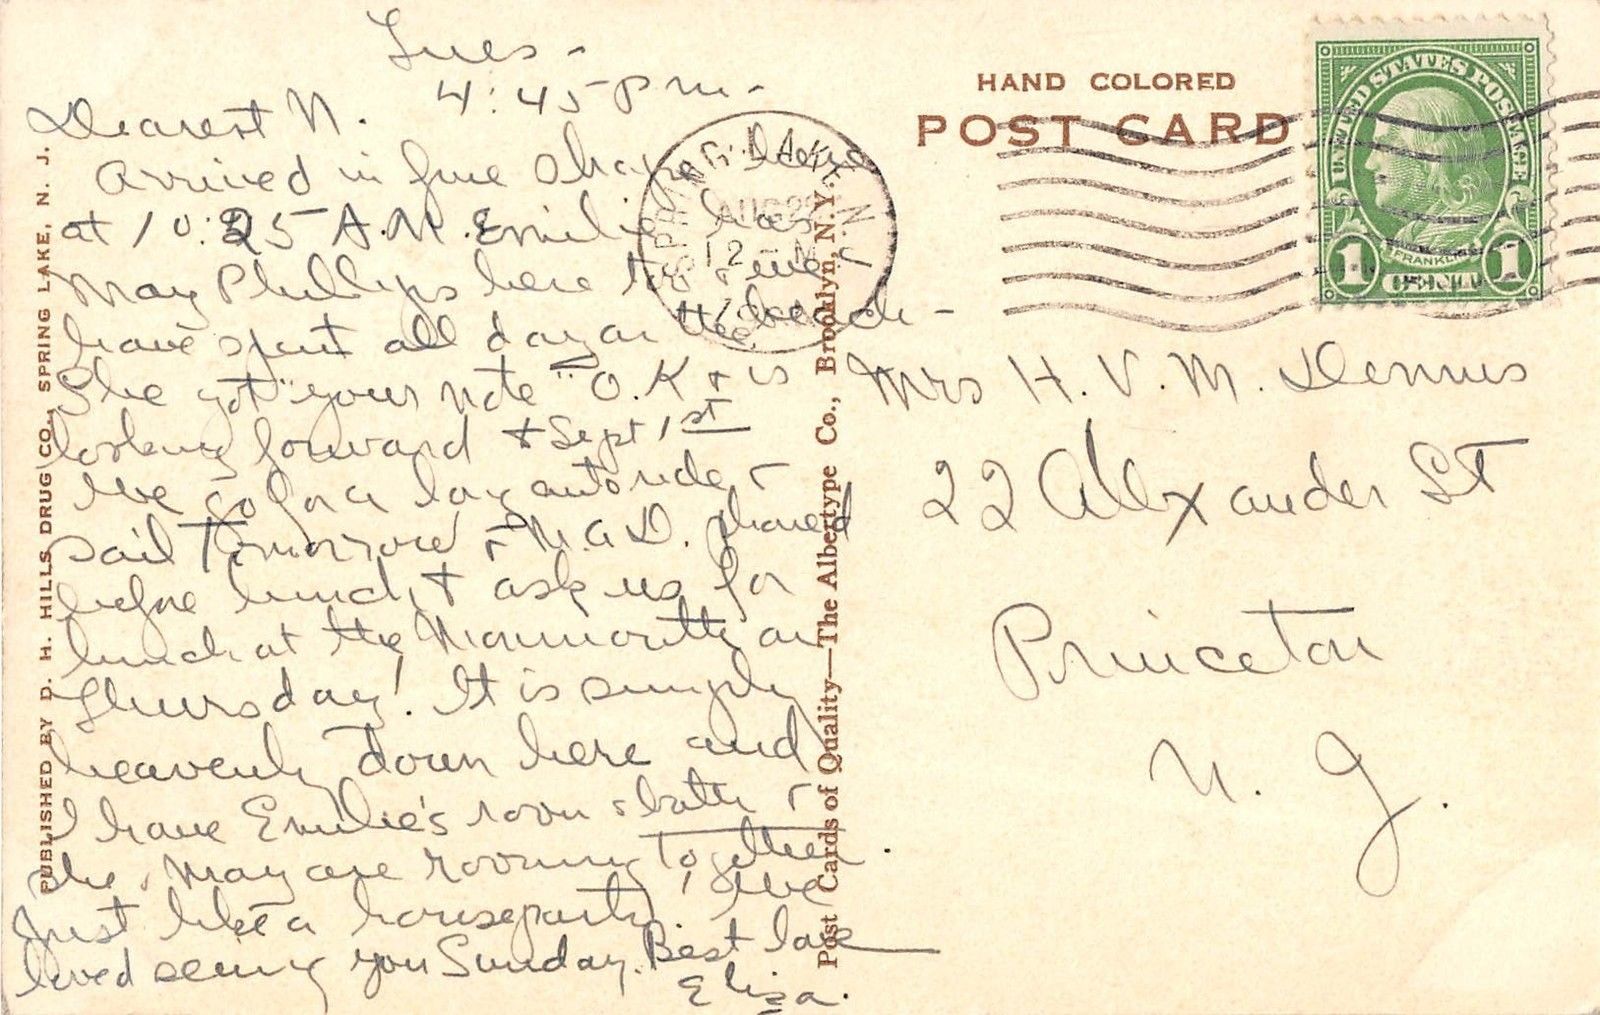 Tues -
4:45 pm -
Dearest N.
Arrived in fine shape here
at 10:25 A.M. Emilie has
May Phillips here too & we
have spent all day on the beach -
She got "your note" O.K & is
looking forward to Sept 1st
We go for a long auto ride &
sail Tomorrow & M.A.D. phoned
before lunch & ask us for
lunch at the Monmouth on
Thursday! It is simply
heavenly down here and
I have Emilie's room & bath &
she & May are rooming together.
Just like a houseparty! We
loved seeing you Sunday. Best love
Eliza.
PUBLISHED BY D. H. HILLS DRUG CO., SPRING LAKE, N. J.
Post Cards of Quality—The Albertype Co., Brooklyn, N.Y.
SPRING LAKE N.J.
AUG 22
12 - M
HAND COLORED
POST CARD
UNITED STATES POSTAGE
FRANKLIN
1 CENT 1
Mrs H. V. M. Dennis
22 Alexander St
Princeton
N. J.